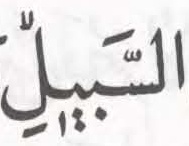 السَّبِيلِّ